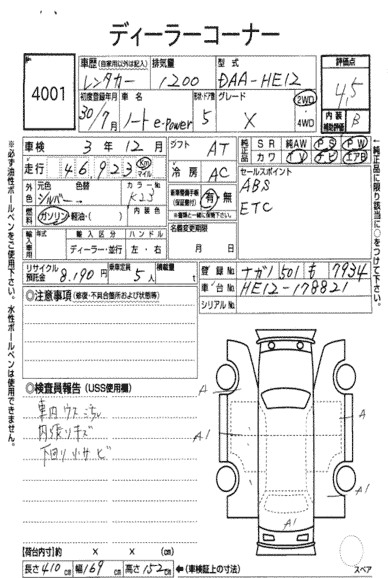 ディーラーコーナー
4001
車歴(自家用以外は記入) 排気量 型式 評価点
レンタカー 1200 DAA-HE12 4.5
初度登録年月 車名 ドア数 グレード
30/7月 ノート e-Power 5 X 2WD 4WD
内装補助評価 B
車検 3年12月 シフト AT
純正品 SR 純AW PS PW
カワ TV ナビ エアB
走行 46,923 Km マイル 冷房 AC
セールスポイント
ABS
ETC
外色 元色 色替 カラーNo.
シルバー K23
新車整備手帳(保証書付) 有・無
※書類と一緒に保険下さい。
燃料 ガソリン・軽油・( ) 内装色
名義変更期限
月 日
輸入車用 年式 輸入区分 ハンドル
ディーラー・並行 左・右
※必ず油性ボールペンをご使用下さい。水性ボールペンは使用できません。
←純正品に限り該当に○をつけて下さい。
リサイクル預託金 8,190円 乗車定員 5人 積載量 t
登録No. ナガノ 501 も 7934
車台No. HE12-178821
シリアルNo.
◎注意事項(修復・不具合箇所および状態等)
◎検査員報告(USS使用欄)
車内ウスごれ
内張りキズ
下回り小サビ
A
A
A1
A1
A1
【荷台内寸】約 × × (cm)
長さ410cm 幅169cm 高さ152cm ←(車検証上の寸法)
スペア